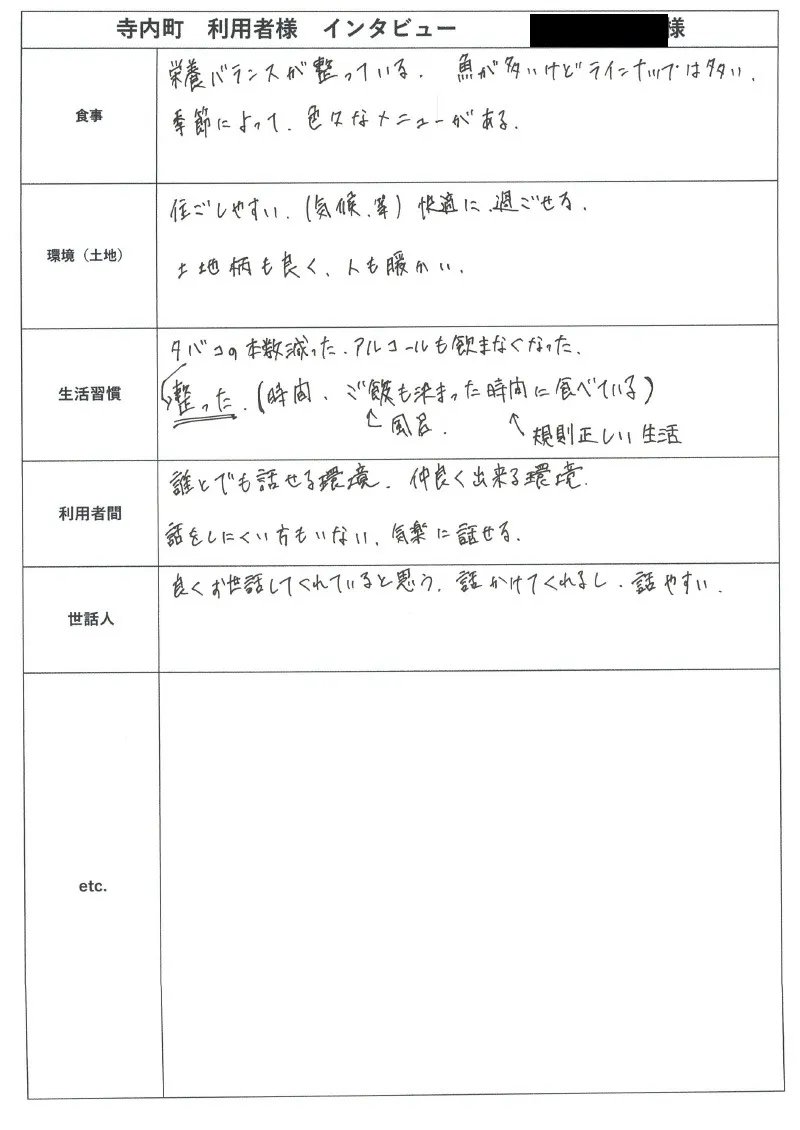 寺内町 利用者様 インタビュー 様
食事
栄養バランスが整っている。 魚が多いけどラインナップは多い。
季節によって、色々なメニューがある。
環境（土地）
住ごしやすい、(気候、等) 快適に、過ごせる。
土地柄も良く、人も暖かい。
生活習慣
タバコの本数減った、アルコールも飲まなくなった。
整った。(時間、ご飯も決まった時間に食べている)
風呂。 規則正しい生活
利用者間
誰とでも話せる環境。仲良く出来る環境。
話をしにくい方もいない、気楽に話せる。
世話人
良くお世話してくれていると思う。話かけてくれるし、話やすい。
etc.